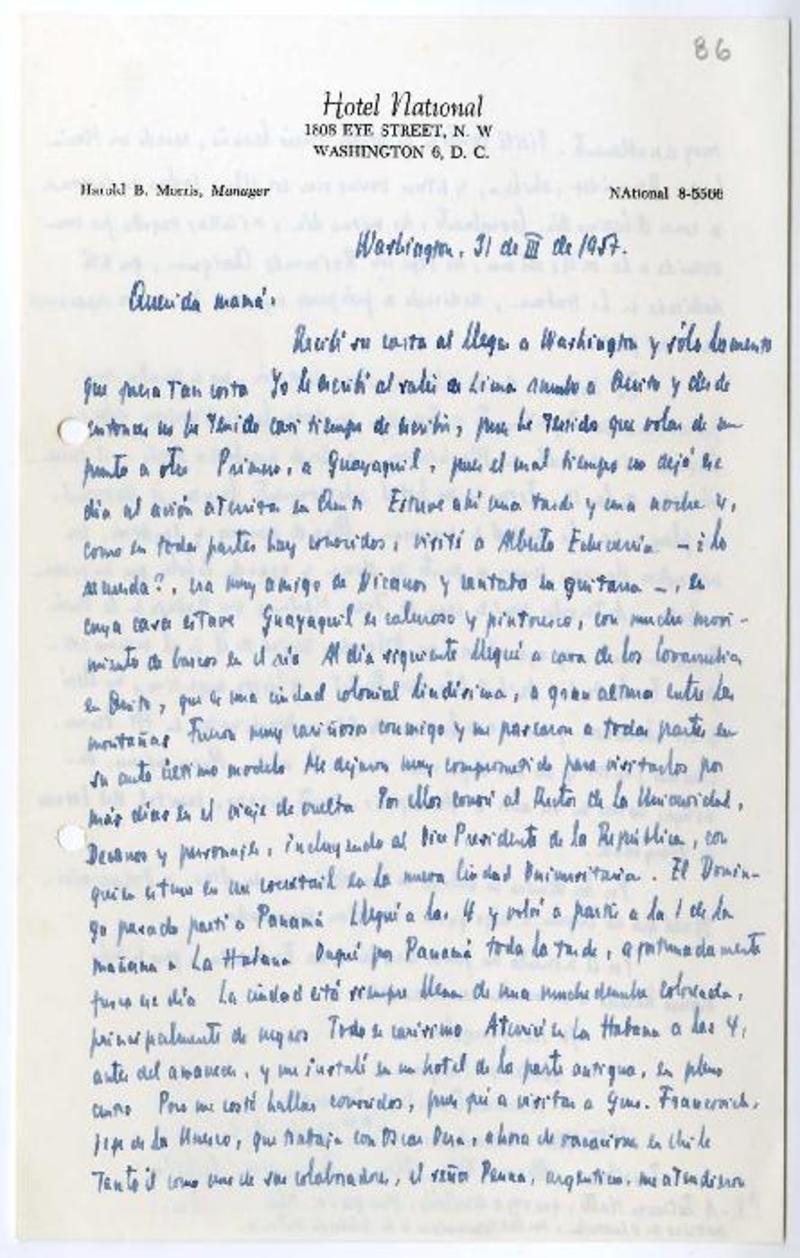 86
Hotel National
1808 EYE STREET, N. W
WASHINGTON 6, D. C.
Harold B. Morris, Manager NAtional 8-5566
Washington, 31 de III de 1957.
Querida mamá:
Recibí su carta al llegar a Washington y sólo lamento
que fuera tan corta Yo le escribí al salir de Lima rumbo a Quito y desde
entonces no he tenido casi tiempo de escribir, pues he tenido que volar de un
punto a otro Primero, a Guayaquil, pues el mal tiempo no dejó ese
día al avión aterrizar en Quito Estuve ahí una tarde y una noche y,
como en todas partes hay conocidos, visité a Alberto Echeverría – ¿lo
recuerda?, era muy amigo de Vicanor y cantaba en guitarra –, en
cuya casa estuve Guayaquil es caluroso y pintoresco, con mucho movi-
miento de barcos en el río Al día siguiente llegué a casa de los
en Quito, que es una ciudad colonial lindísima, a gran altura entre las
montañas Fueron muy cariñosos conmigo y me pasearon a todas partes en
su auto último modelo Me dejaron muy comprometido para visitarlos por
más días en el viaje de vuelta Por ellos conocí al Rector de la Universidad,
Decanos y personajes, incluyendo al Vice Presidente de la República, con
quien estuve en un cocktail en la nueva Ciudad Universitaria. El Domin-
go pasado partí a Panamá Llegué a las 4 y volví a partir a la 1 de la
mañana a La Habana Vagué por Panamá toda la tarde, afortunadamente
fresco ese día La ciudad está siempre llena de una muchedumbre coloreada,
principalmente de negros Todo es carísimo Aterricé en La Habana a las 4,
antes del amanecer, y me instalé en un hotel de la parte antigua, en pleno
centro Poco me costó hallar conocidos, pues fui a visitar a Gmo. Francovich,
jefe de la Unesco, que trabaja con Oscar Vera, ahora de vacaciones en Chile
Tanto él como uno de sus colaboradores, el señor Penna, argentino, me atendieron